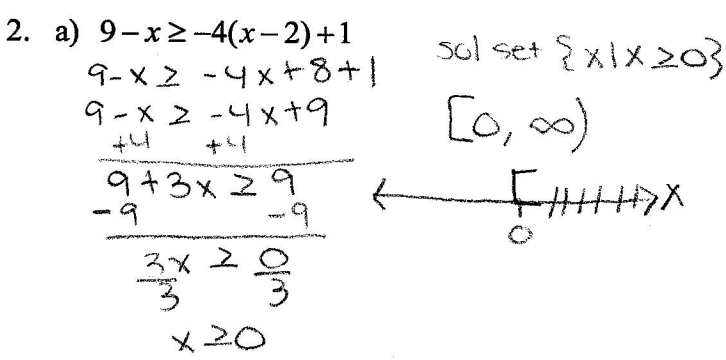 2. a) 9−x≥−4(x−2)+1
9-x ≥ -4x+8+1
9-x ≥ -4x+9
+4 +4
9+3x ≥ 9
-9 -9
3x/3 ≥ 0/3
x≥0
sol set {x|x≥0}
[0, ∞)
[ x
0